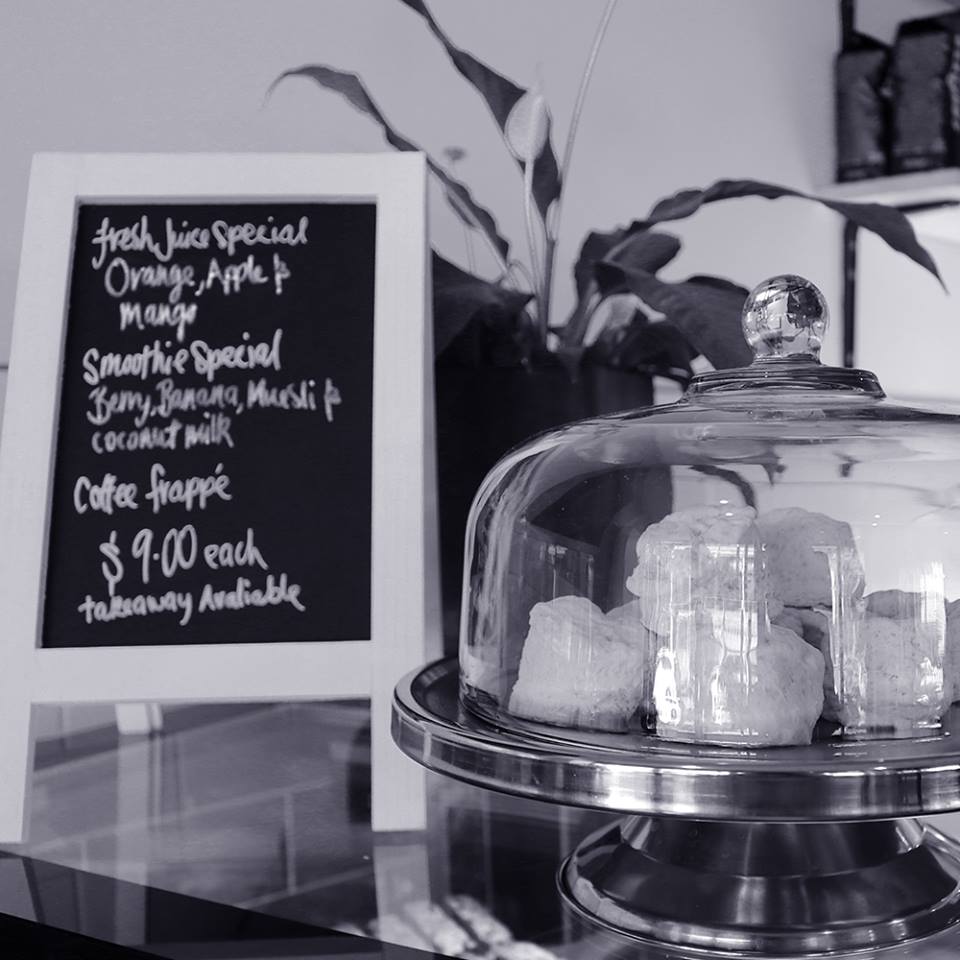 fresh Juice Special
Orange, Apple &
mango
Smoothie Special
Berry, Banana, Muesli &
coconut milk
Coffee frappé
$9.00 each
takeaway Avaliable